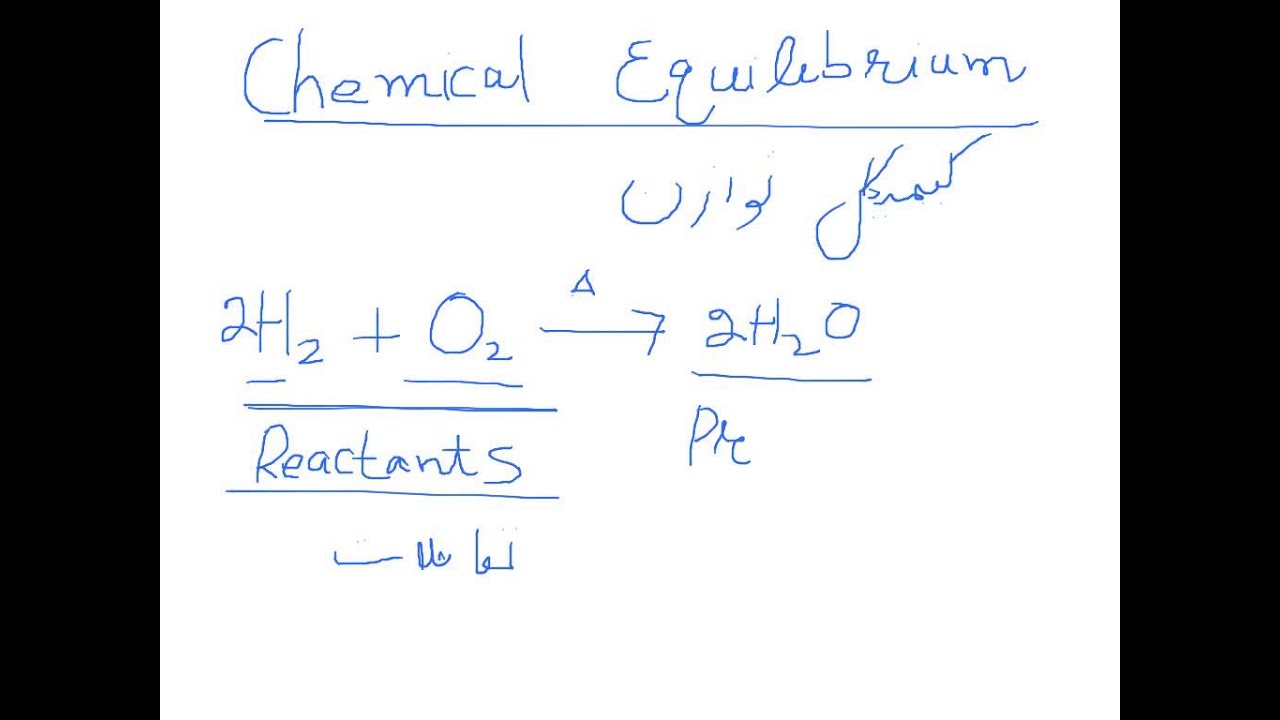 Chemical Equilebrium
کیمیکل توازن
2H₂ + O₂ →Δ 2H₂O
Reactants Pr